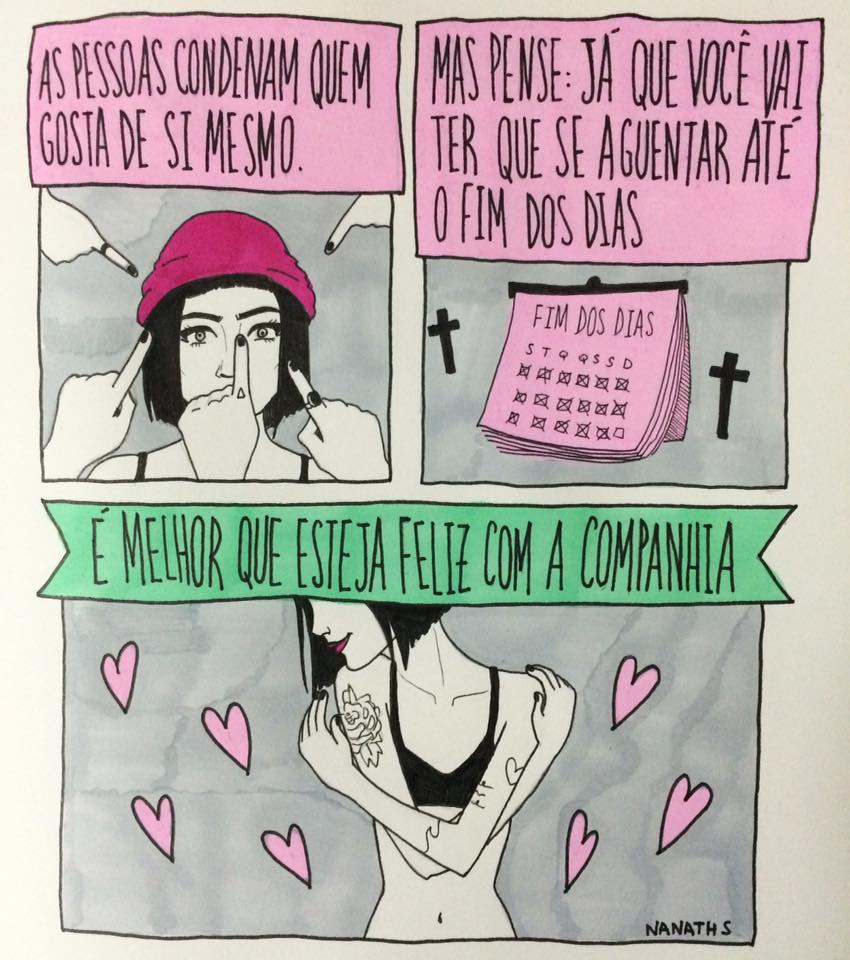 AS PESSOAS CONDENAM QUEM
GOSTA DE SI MESMO.
MAS PENSE: JÁ QUE VOCÊ VAI
TER QUE SE AGUENTAR ATÉ
O FIM DOS DIAS
FIM DOS DIAS
S T Q Q S S D
É MELHOR QUE ESTEJA FELIZ COM A COMPANHIA
NANATHS